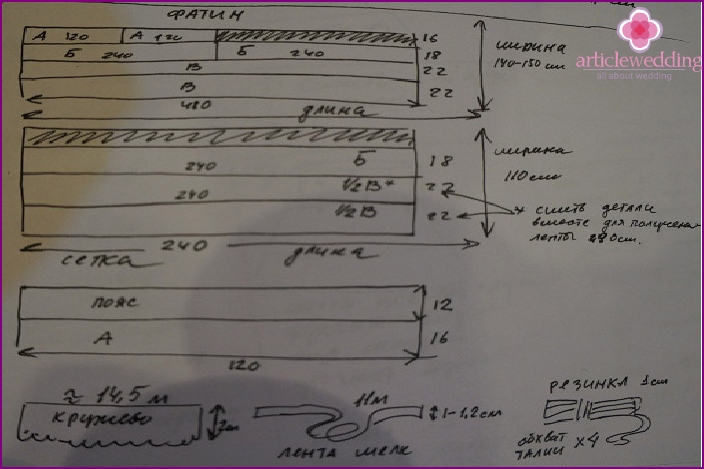 ФАТИН
А 120 А 120 16
Б 240 Б 240 18
В 22
В 22
480 длина
ширина
140-150 см
articlewedding
all about wedding
Б 18
240
½ В* 22
240
½ В 22
240
сетка длина
ширина
110 см
* сшить детали
вместе для получения
ленты
пояс 12
А 16
120
≈ 14,5 м
кружево
11 м
1-1,2 см
лента шелк
резинка 1 см
обхват
талии x4